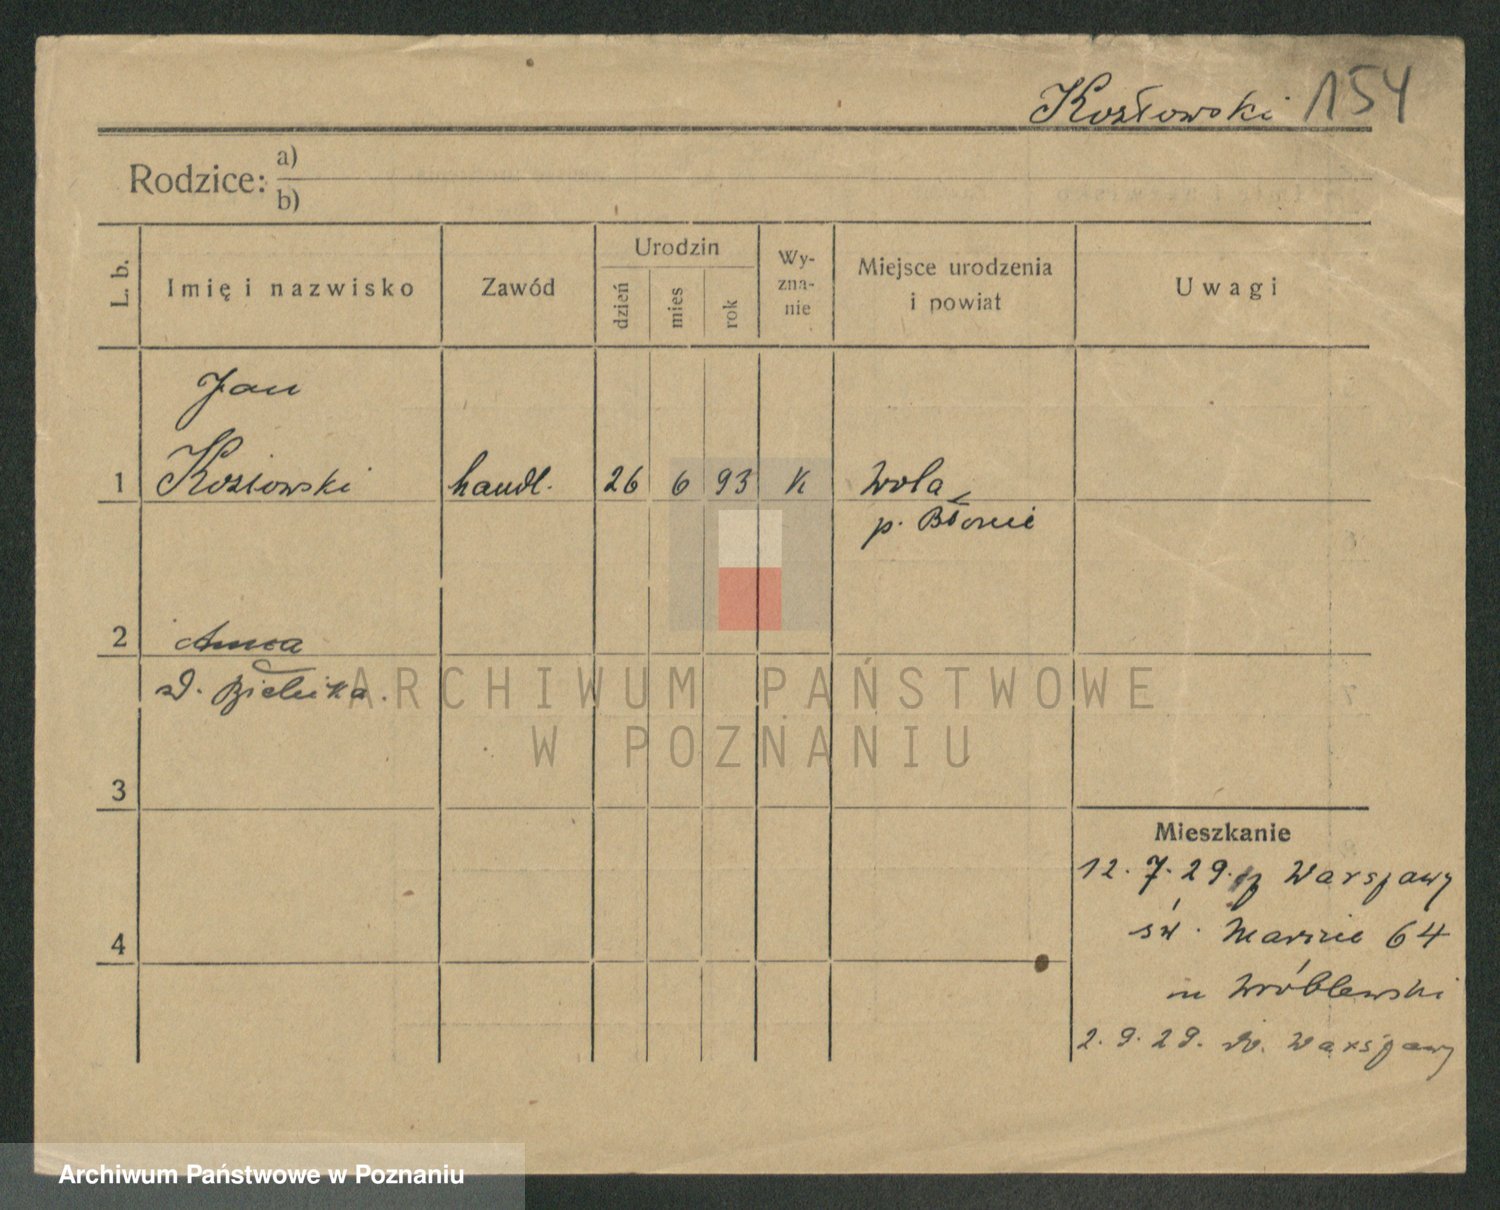 Kozłowski 154
Rodzice: a)
b)
L. b.
Imię i nazwisko
Zawód
Urodzin
dzień
mies
rok
Wy-
zna-
nie
Miejsce urodzenia
i powiat
Uwagi
Jan
1 Kozłowski handl. 26 6 93 K Wola
p. Błonie
2 Anna
zd. Bielicka.
3
4
Mieszkanie
12. 7. 29. z Warszawy
św. Marcin 64
m Wróblewski
2. 9. 29. do Warszawy
ARCHIWUM PAŃSTWOWE
W POZNANIU
Archiwum Państwowe w Poznaniu